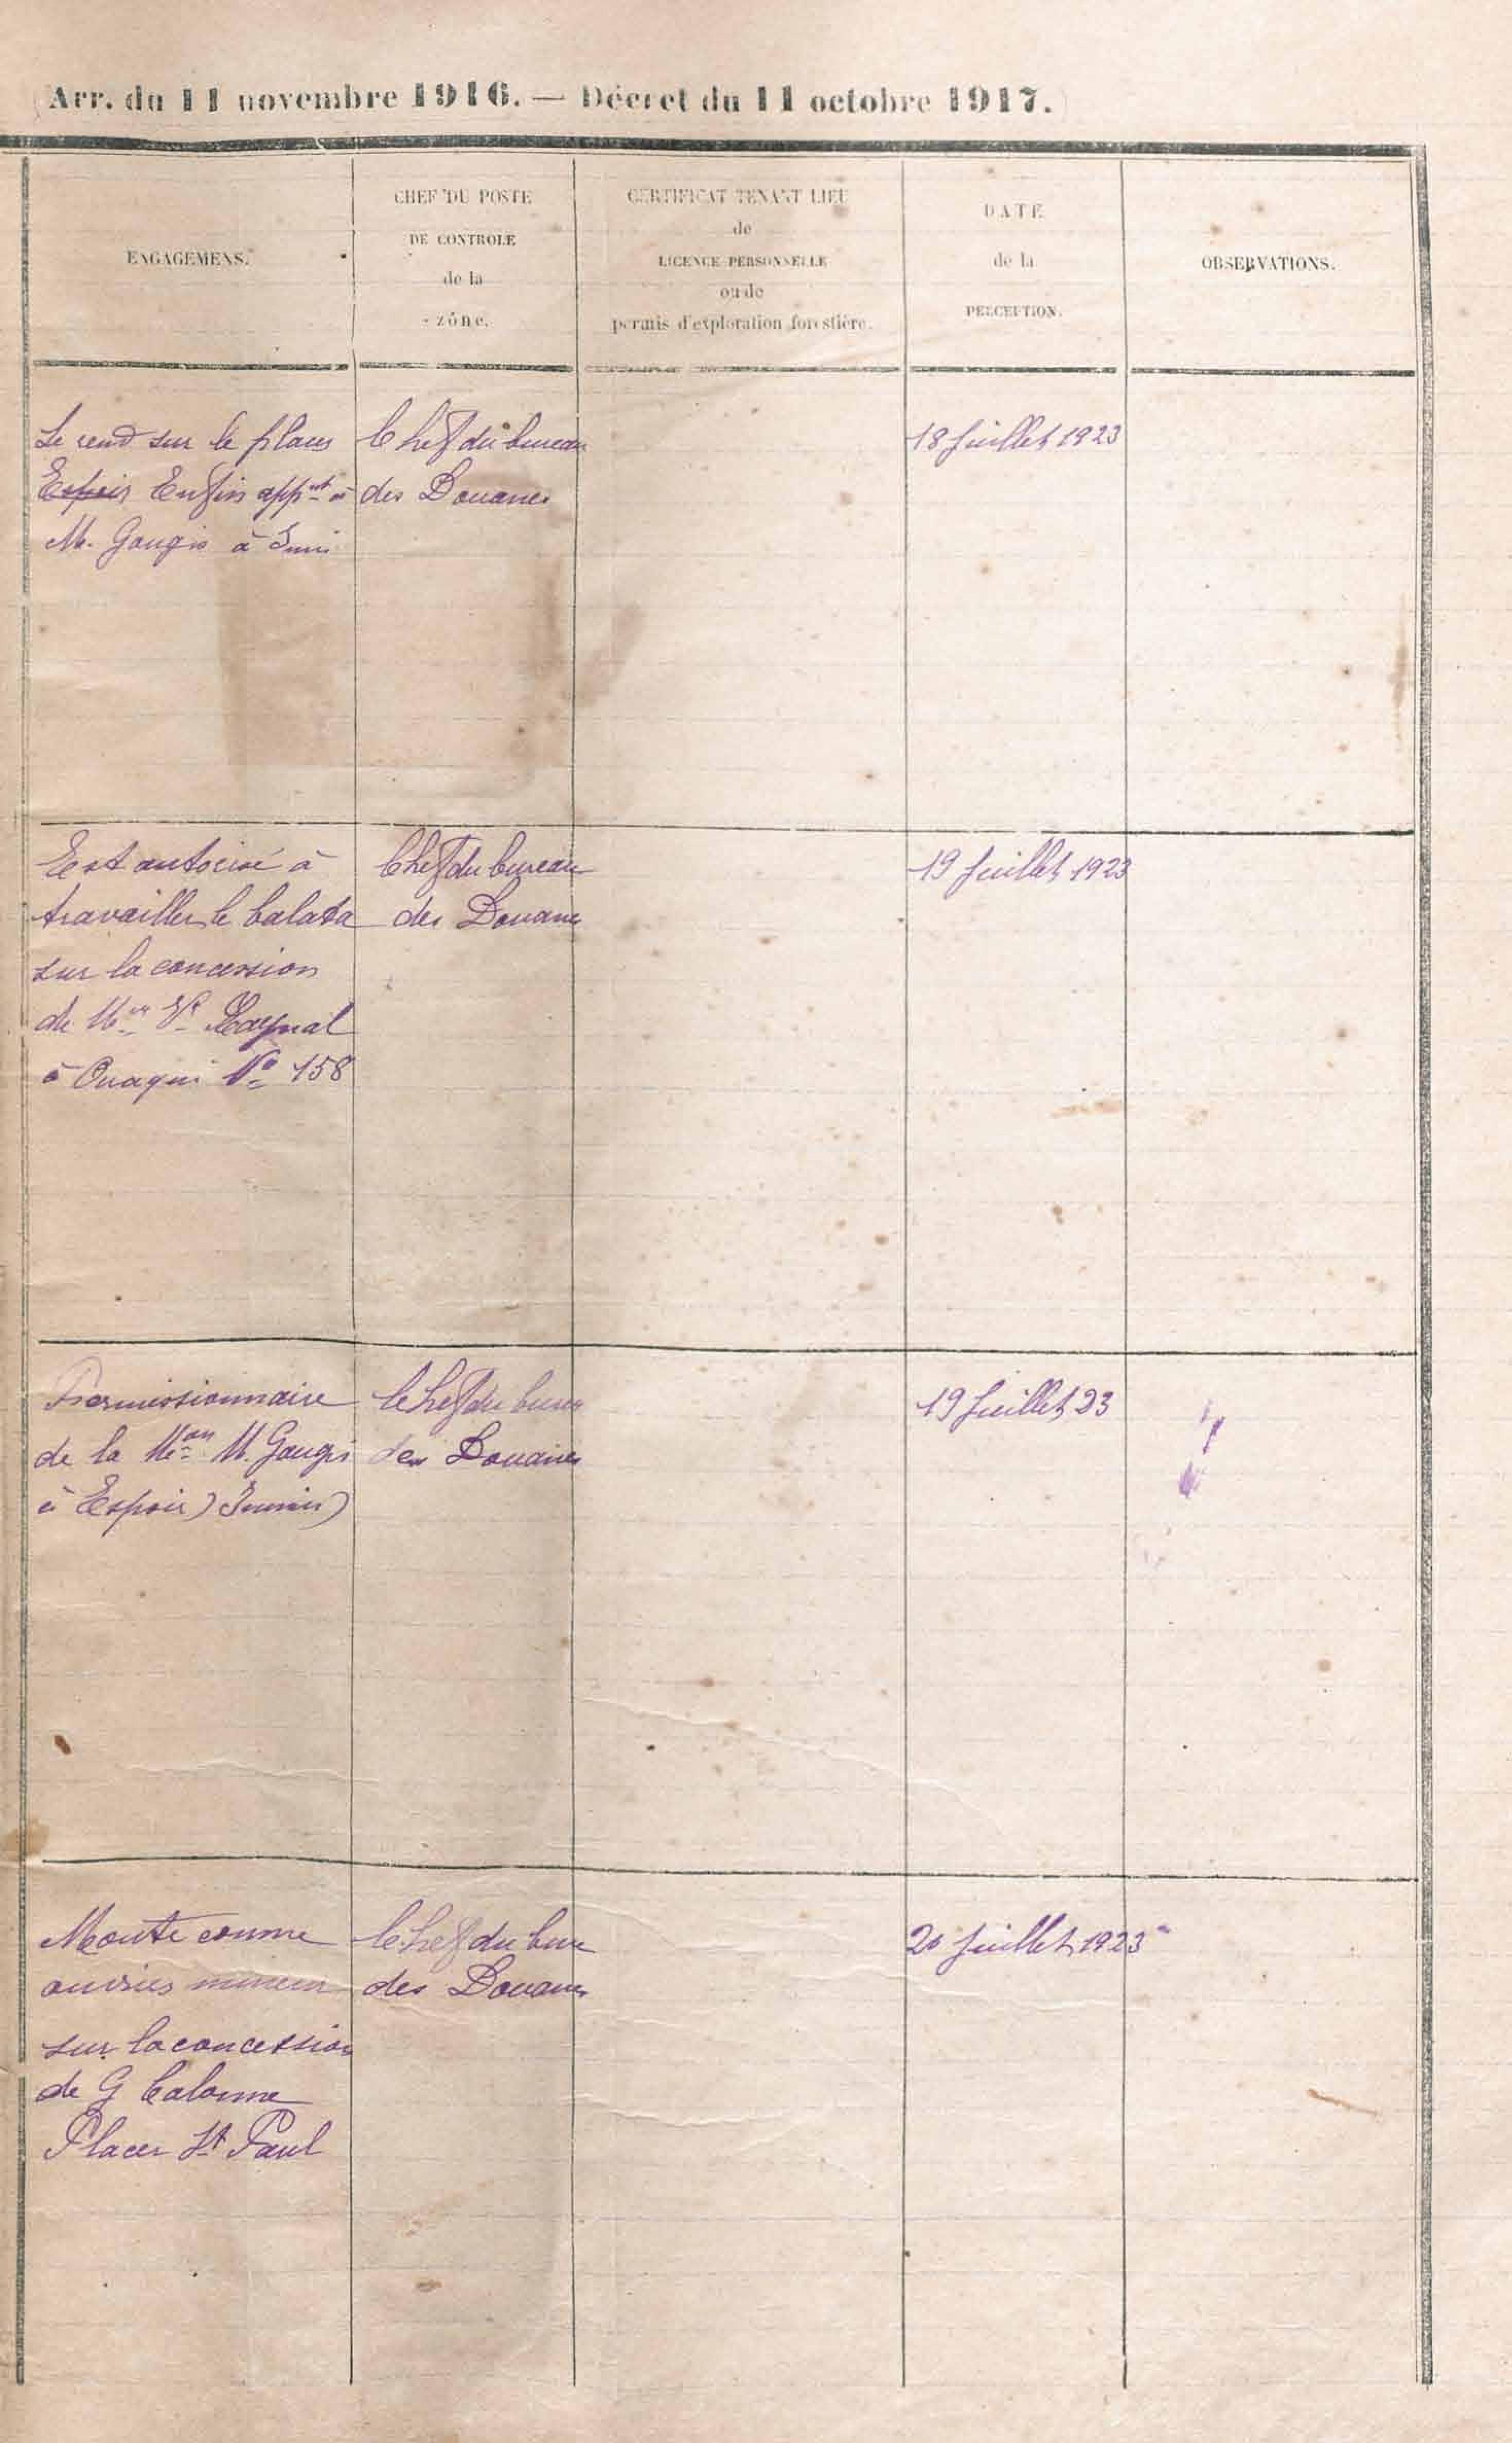 (Arr. du 11 novembre 1916. — Décret du 11 octobre 1917.)
ENGAGEMENS.
CHEF DU POSTE
DE CONTROLE
de la
zône.
CERTIFICAT TENANT LIEU
de
LICENCE PERSONNELLE
ou de
permis d'exploration forestière.
DATE
de la
PERCEPTION.
OBSERVATIONS.
Se rend sur le placer
Espoir Enfin appnt à
M. Gougis à Inini
Chef du bureau
des Douanes
18 Juillet 1923
Est autorisé à
travailler le balata
sur la concession
de Mme Ve
à Ouaqui No 158
Chef du bureau
des Douanes
19 Juillet 1923
Permissionnaire
de la Mon M. Gougis
à Espoir) Inini)
le Chef du bureau
des Douanes
19 Juillet 23
Monte comme
ouvrier mineur
sur la concession
de G Calonne
Placer St Paul
le Chef du bure
des Douanes
20 Juillet 1923